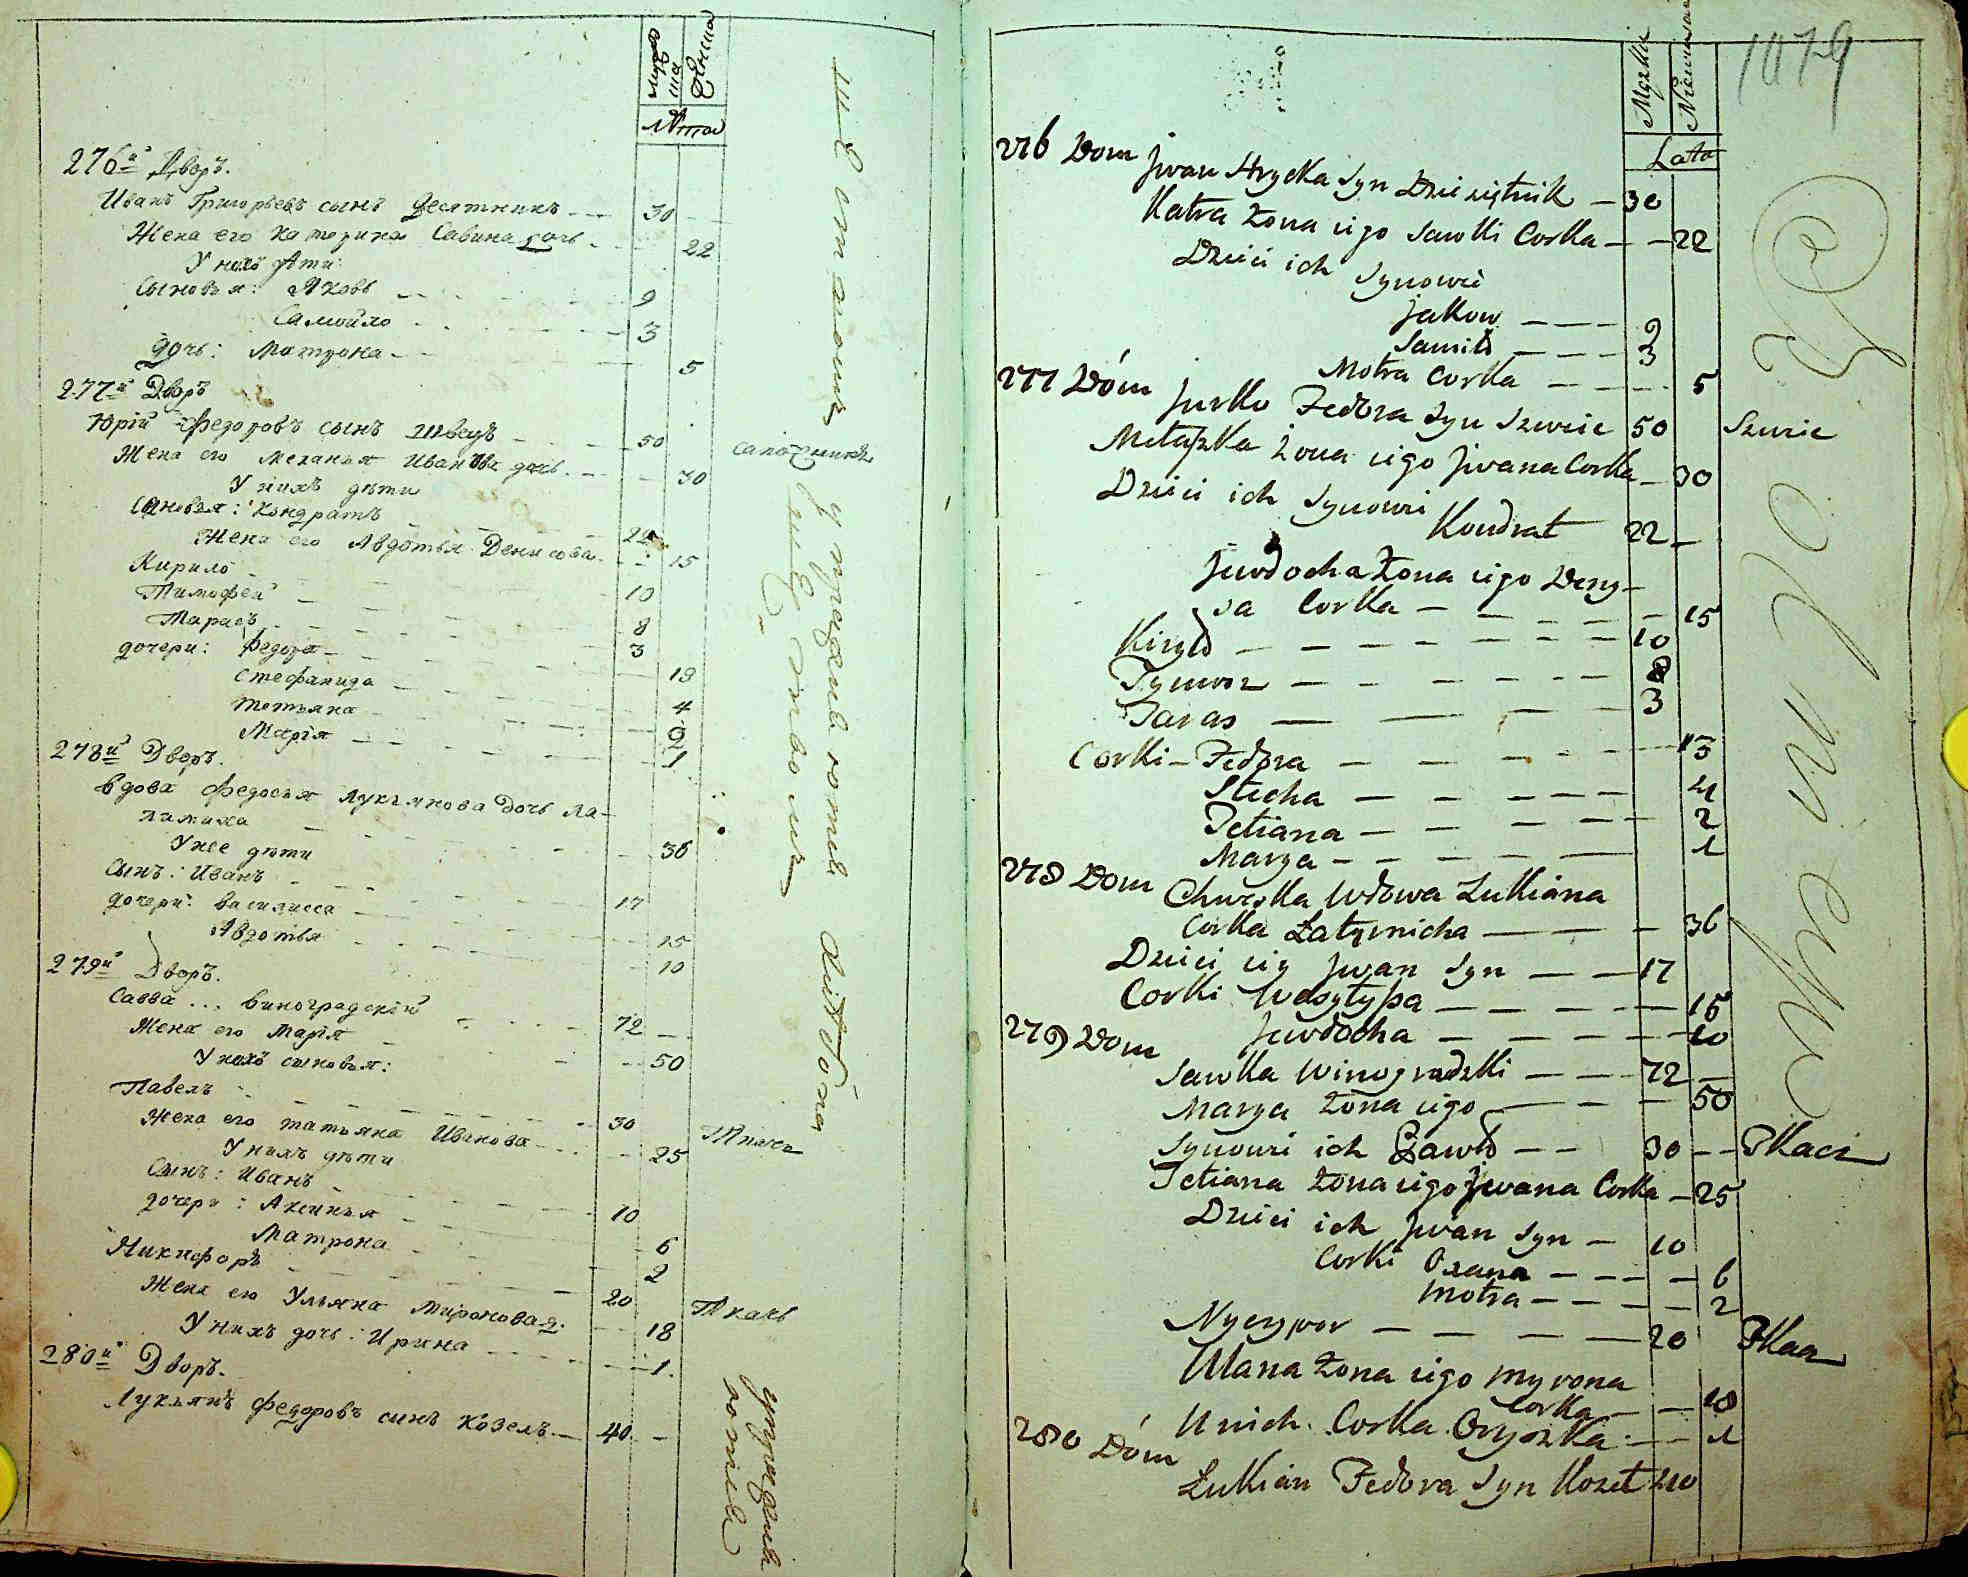 мужеска
женска
лѣта
276й Дворъ.
Иванъ Григорьевъ сынъ Десятникъ — 30
Жена его Катерина Савина дочь — 22
У нихъ дѣти
Сыновья: Яковъ — 9
Самойло — 3
Дочь: Матрона — 5
277й Дворъ
Юрій Федоровъ сынъ Швецъ — 50 сапожникъ
Жена его Меланья Иванова дочь — 30
У нихъ дѣти
Сыновья: Кондратъ — 22
Жена его Авдотья Денисова — 15
Кирило — 10
Тимофей — 8
Тарасъ — 3
дочери: Федора — 13
Стефанида — 4
Татьяна — 2
Марія — 1
278й Дворъ.
Вдова Федосья Лукьянова дочь Ла-
— 36
У нее дѣти
Сынъ: Иванъ — 17
дочери: Василисса — 15
Авдотья — 10
279й Дворъ.
Савва ... Виноградскій — 72 —
Жена его Марія — 50
У нихъ сыновья:
Павелъ — 30 Ткачъ
Жена его Татьяна Иванова — 25
У нихъ дѣти
Сынъ: Иванъ — 10
дочери: Аксинья — 6
Матрона — 2
Никифоръ — 20 Ткачъ
Жена его Ульяна Миронова д. — 18
У нихъ дочь: Ирина — 1.
280й Дворъ.
Лукьянъ Федоровъ сынъ Козелъ — 40 —
1079
Męzka
Lata
276 Dom Jwan Hrycka Syn Dziesiętnik — 30
Katra Żona iego Sawki Corka — — 22
Dzieci ich Synowie
Jakow — — — 9
Samiło — — — 3
Motra Corka — — — 5
277 Dóm Jurko Fedora Syn Szwiec 50 Szwiec
Melaszka Żona iego Jwana Corka — 30
Dzieci ich Synowie
Kondrat 22 —
Jewdocha Żona iego Deny-
sa Corka — — — 15
Kiryło — — — 10
Tymosz — — — 8
Taras — — — 3
Corki — Fedora — — — 13
Stecha — — — 4
Tetiana — — — 2
Marya — — — 1
278 Dom Chweska Wdowa Lukiana
Corka Łatyrnicha — — — 36
Dzieci iey Jwan Syn — — 17
Corki Wasylyssa — — — 15
Jewdocha — — — 10
279 Dom
Sawka Winogradzki — — 72 —
Marya Żona iego — — — 50
Synowie ich Pawło — — 30 — — Tkacz
Tetiana Żona iego Jwana Corka — 25
Dzieci ich Jwan Syn — 10
Corki Oxana — — — 6
Motra — — — 2
Nyczypor — — — 20 Tkacz
Ulana Żona iego Myrona
Corka — — 18
U nich Corka Oryszka — — 1
280 Dóm
Lukian Fedora Syn Kozeł 40